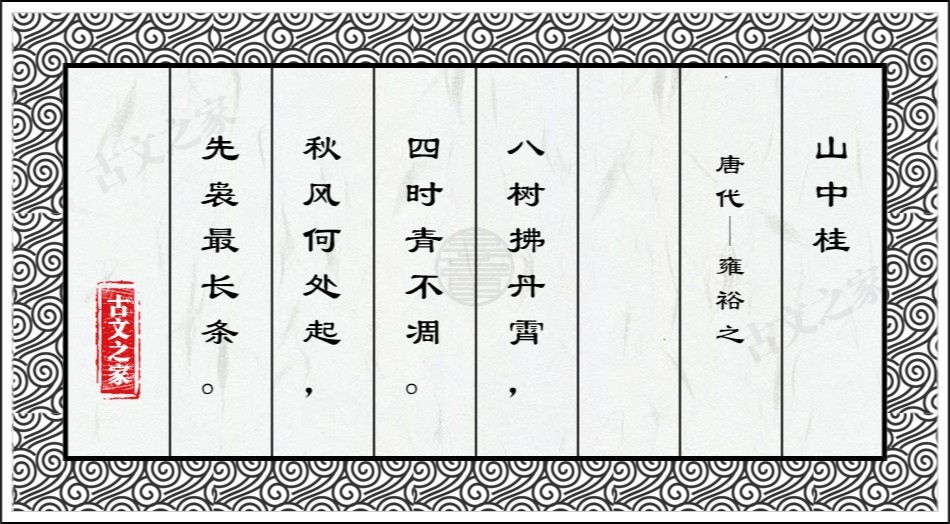 山中桂
唐代——雍裕之
八树拂丹霄，
四时青不凋。
秋风何处起，
先袅最长条。
古文之家
古文之家
古文之家